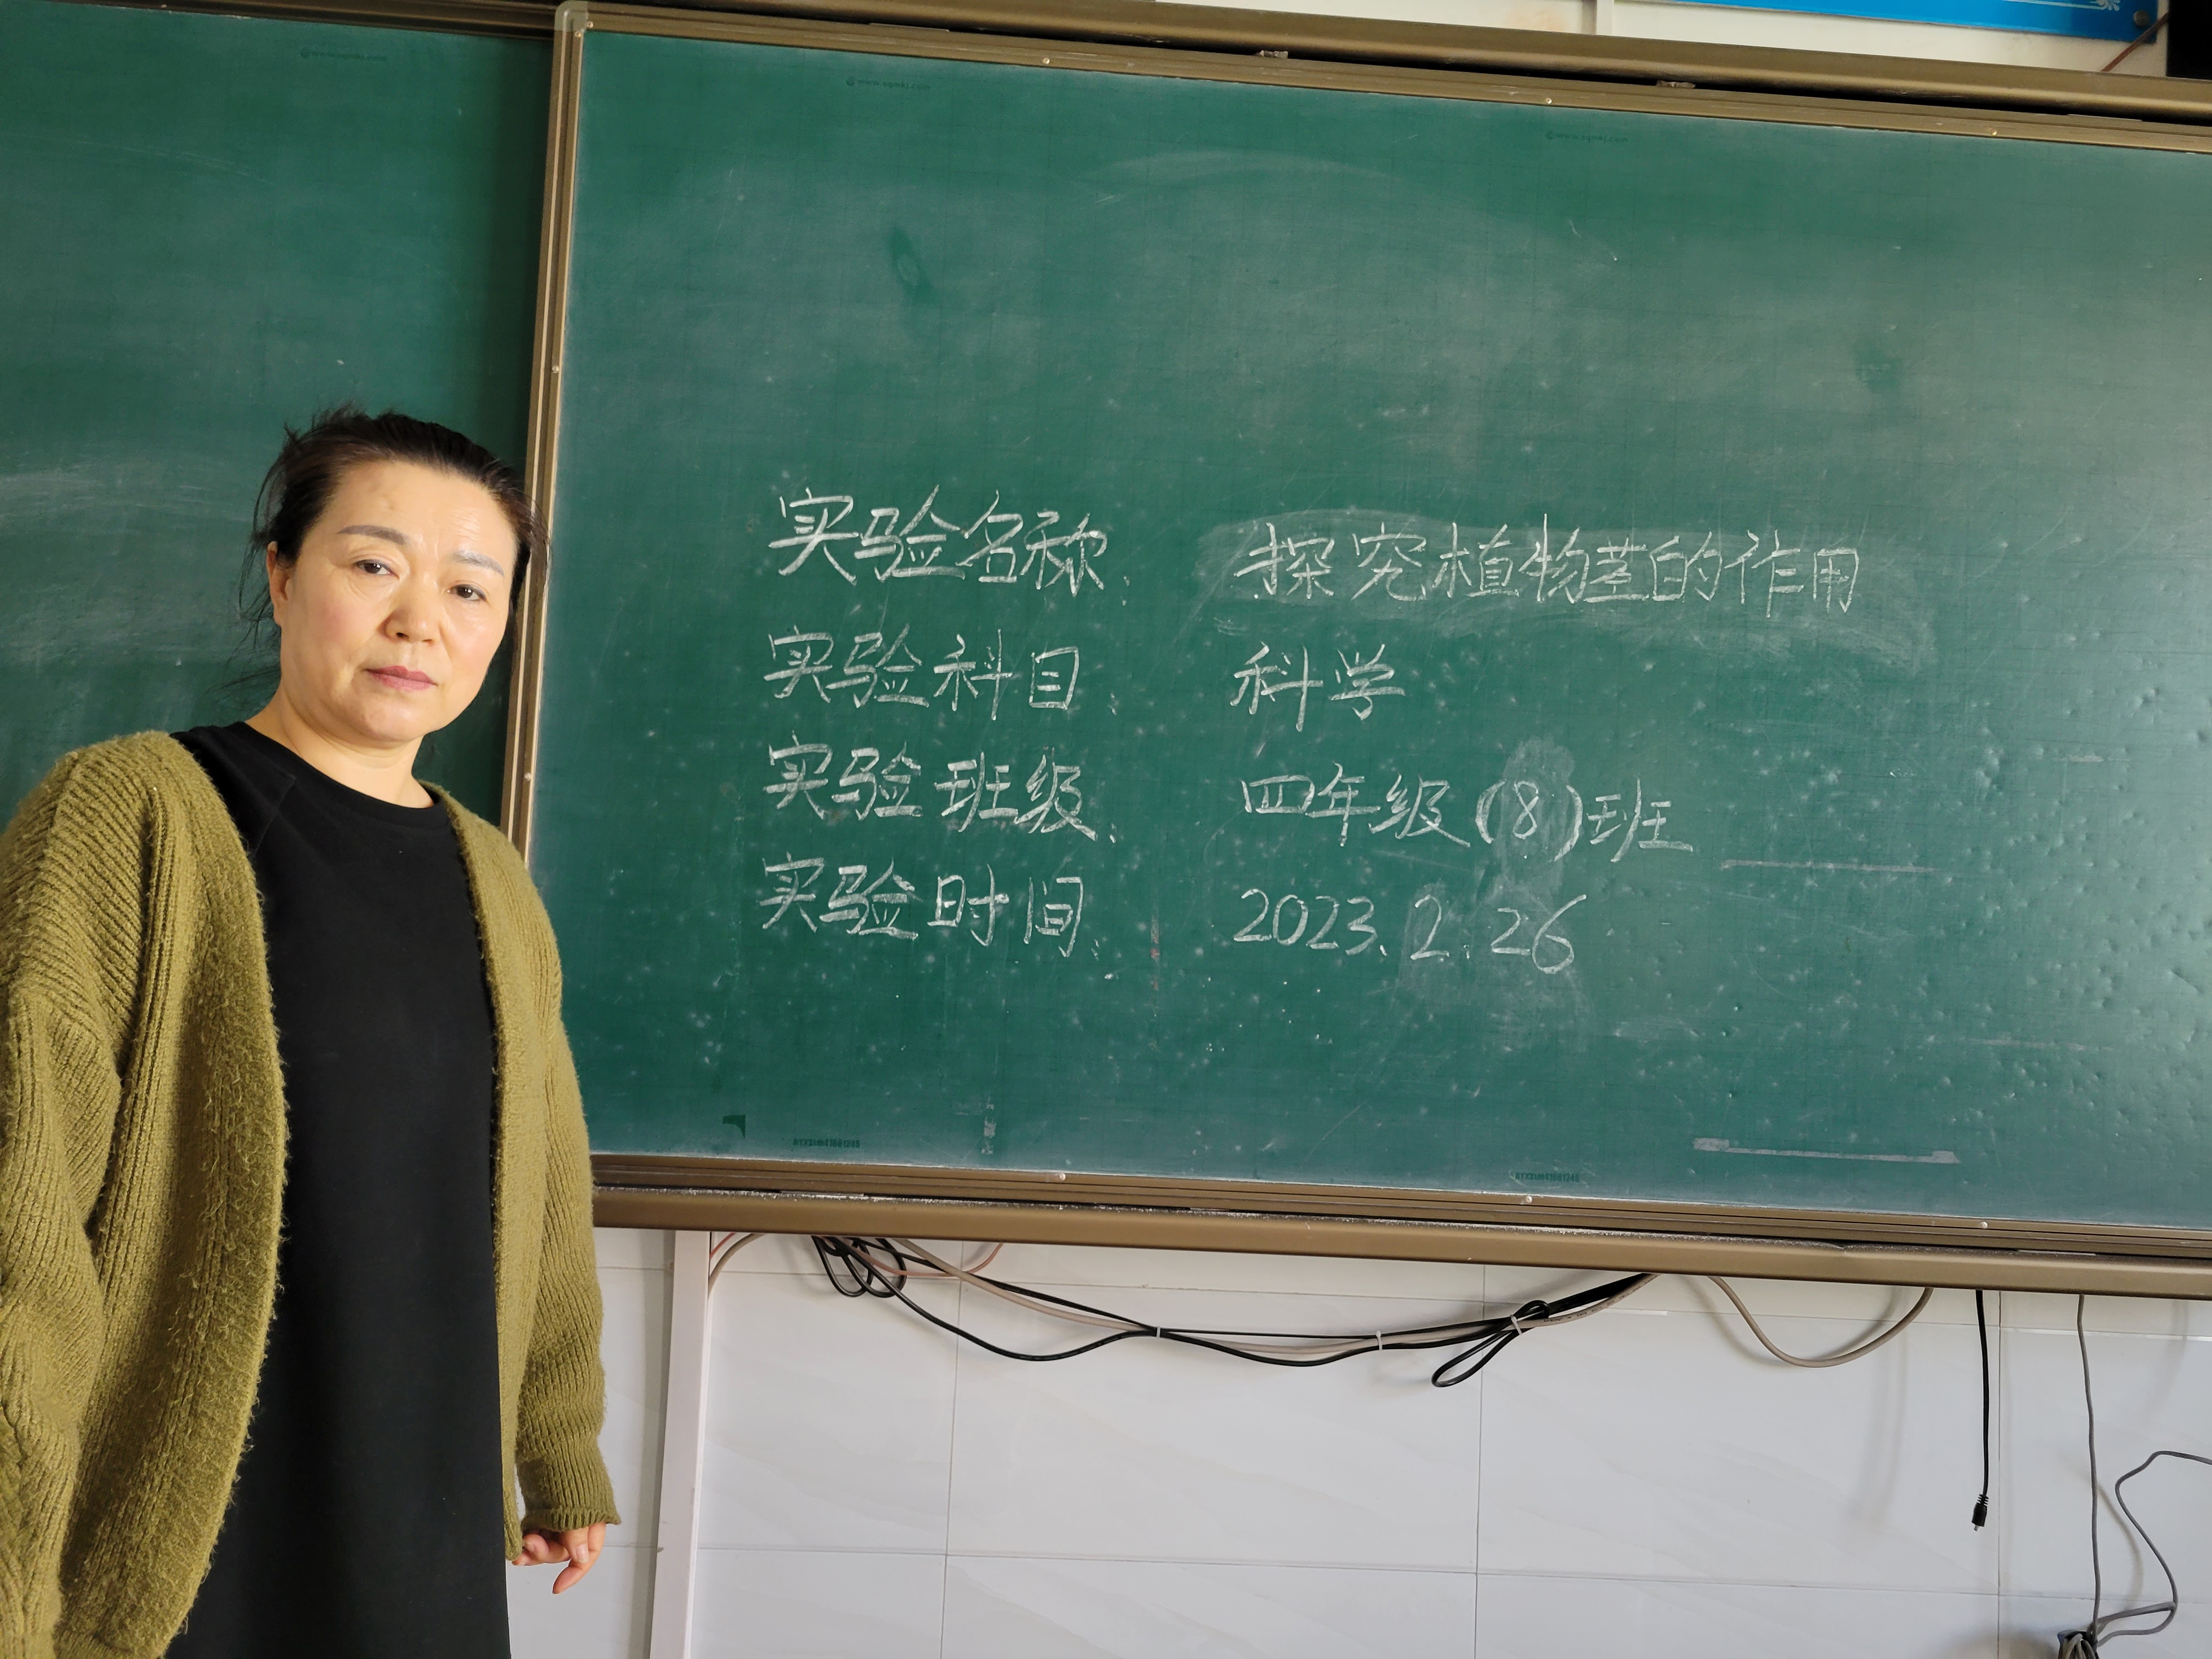 实验名称: 探究植物茎的作用
实验科目: 科学
实验班级: 四年级(8)班
实验时间: 2023.2.26